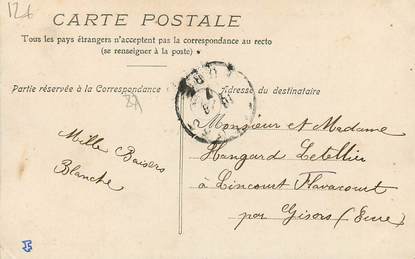 126
CARTE POSTALE
Tous les pays étrangers n'acceptent pas la correspondance au recto
(se renseigner à la poste)
Partie réservée à la Correspondance
Adresse du destinataire
Mille Baisers
Blanche
Monsieur et Madame
Hangard Letellier
à Lincourt Flavacourt
par Gisors (Eure)